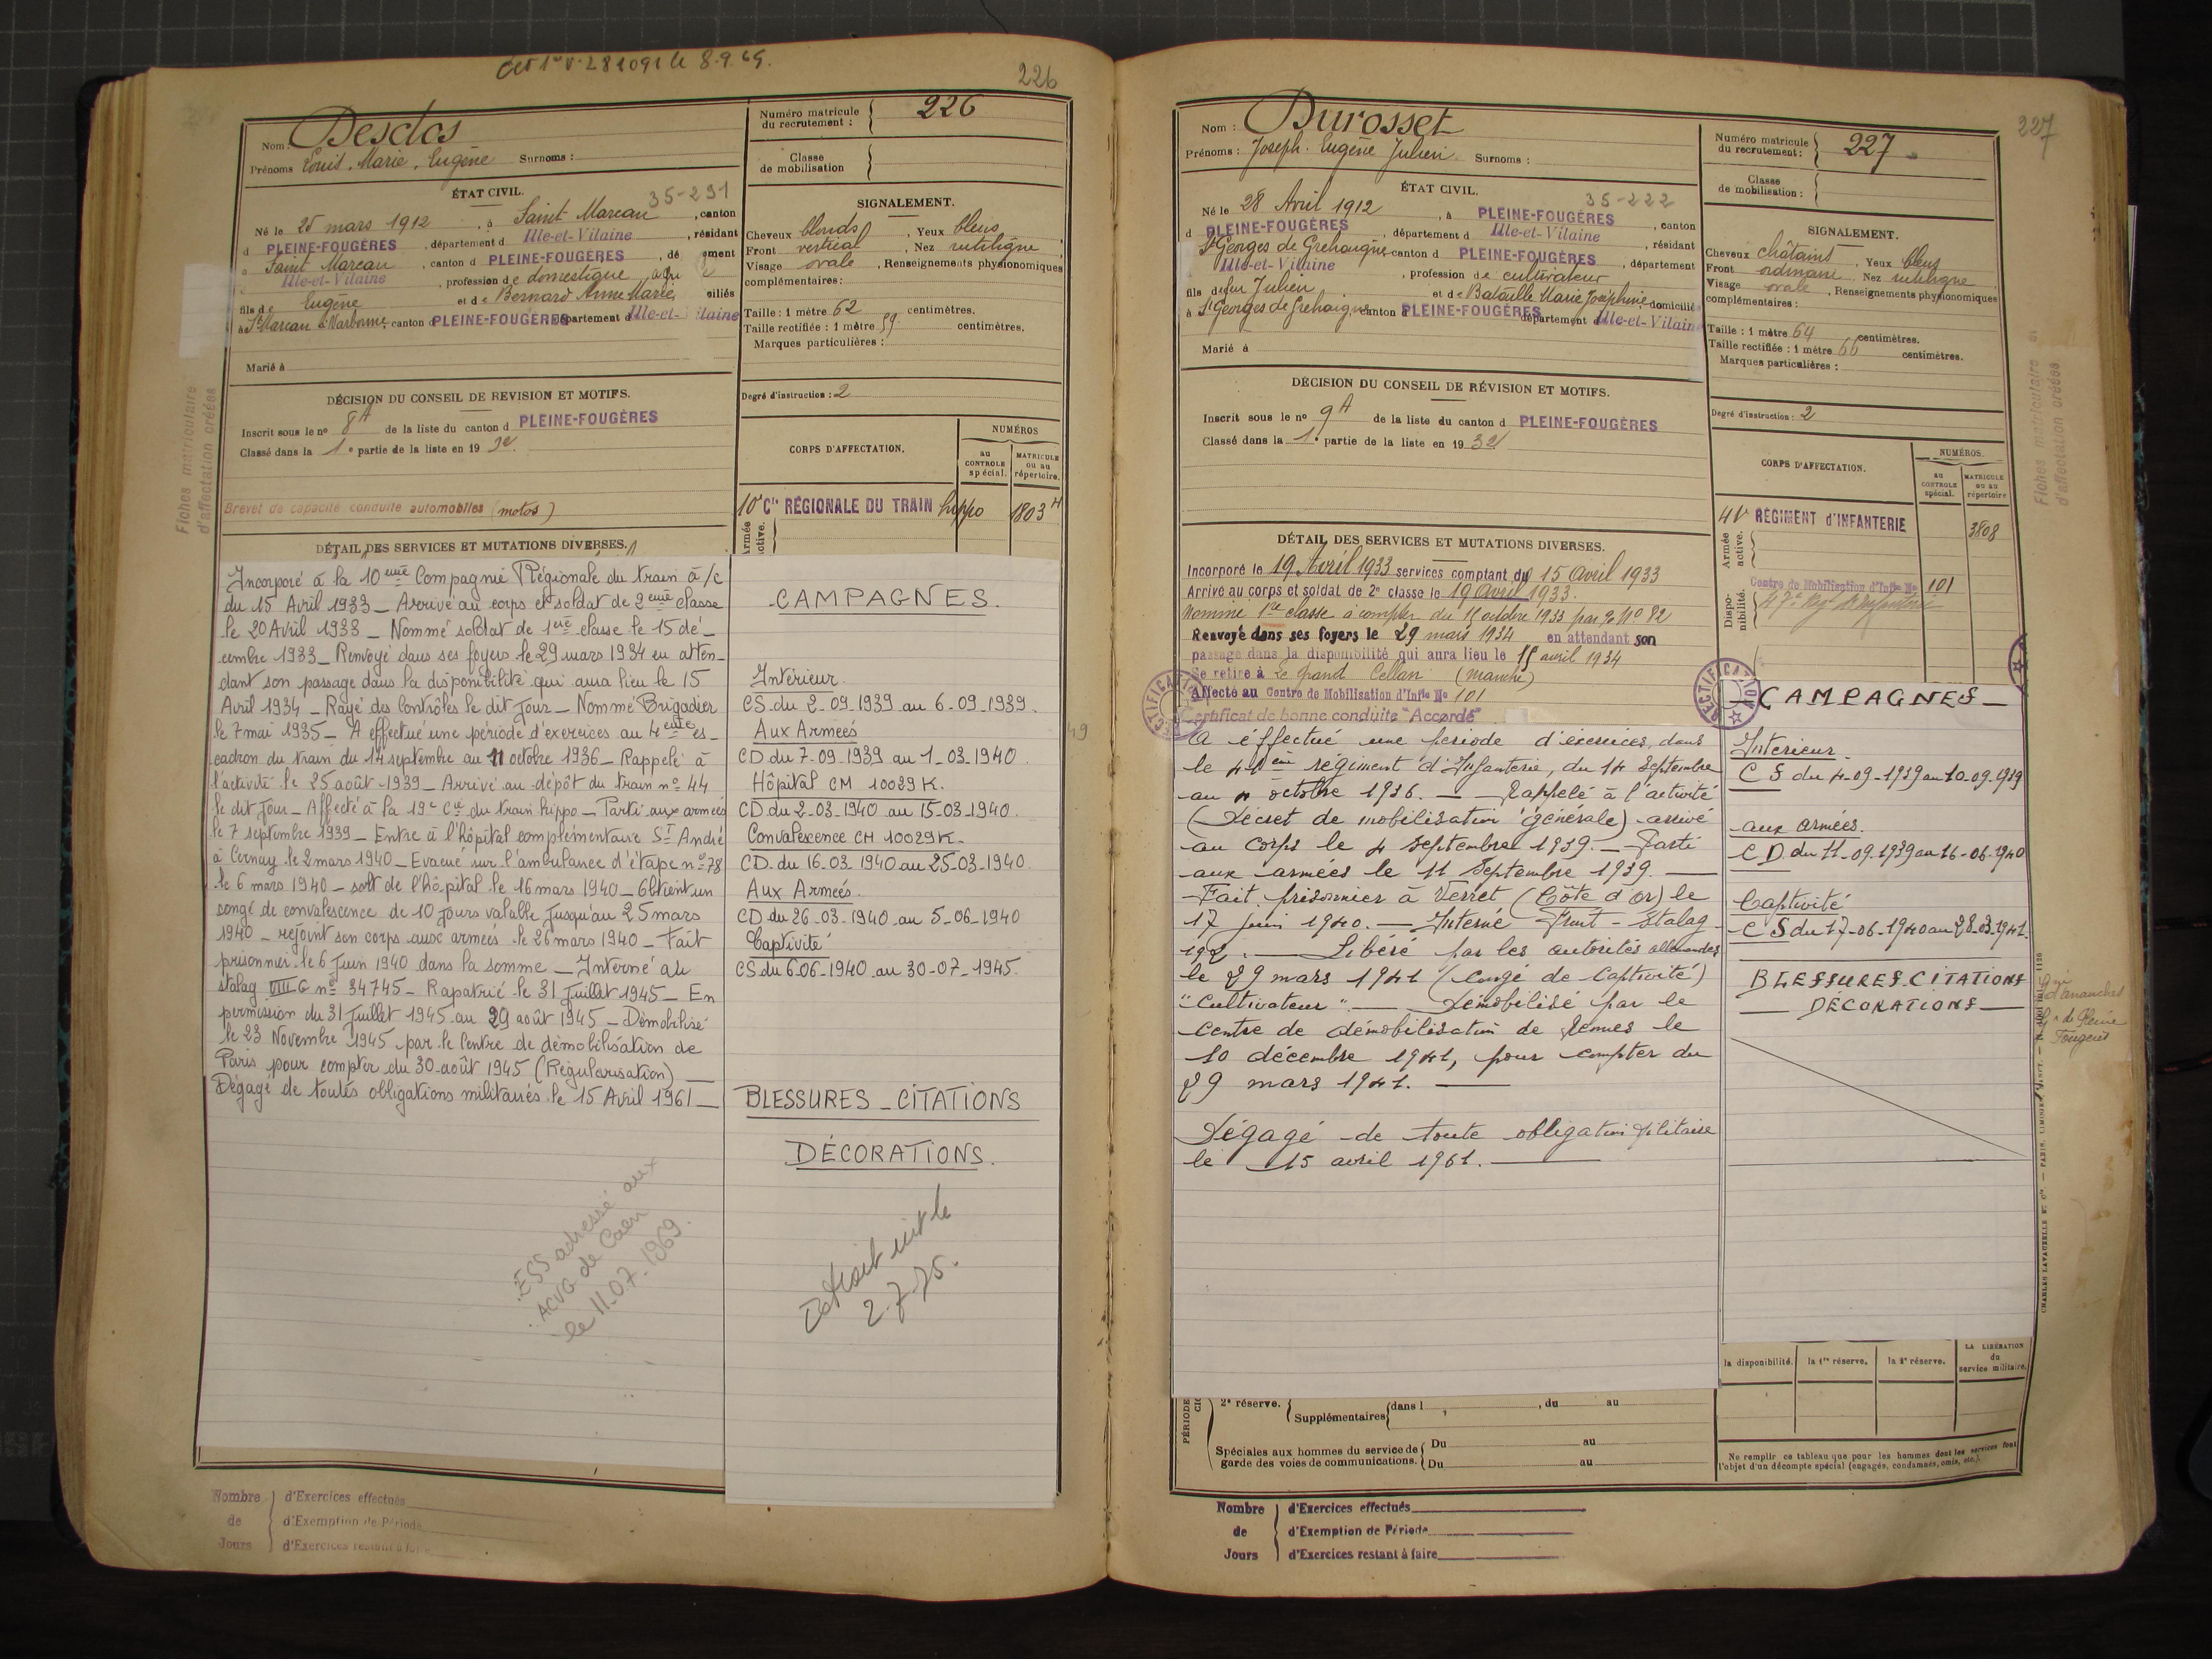 226
Nom: Desdos
Prénoms Louis, Marie, Eugène Surnoms:
Numéro matricule du recrutement: 226
Classe de mobilisation
ÉTAT CIVIL. 35-291
Né le 25 mars 1912, à Saint Marcan, canton
d PLEINE-FOUGÈRES, département d Ille-et-Vilaine, résidant
à Saint Marcan, canton d PLEINE-FOUGÈRES, dé ement
Ille-et-Vilaine, profession de domestique
fils de Eugène et de Bernard Anne Marie, ciliés
à St Marcan canton d PLEINE-FOUGÈRES département d Ille-et- ilaine
Marié à
SIGNALEMENT.
Cheveux blonds, Yeux bleus,
Front vertical, Nez rectiligne,
Visage ovale, Renseignements physionomiques
complémentaires:
Taille: 1 mètre 62 centimètres.
Taille rectifiée: 1 mètre 59 centimètres.
Marques particulières:
DÉCISION DU CONSEIL DE REVISION ET MOTIFS.
Inscrit sous le no 8A de la liste du canton d PLEINE-FOUGÈRES
Classé dans la 1e partie de la liste en 1932
Brevet de capacité conduite automobiles (motos)
Degré d'instruction: 2
CORPS D'AFFECTATION.
NUMÉROS
au CONTROLE spécial.
MATRICULE ou au répertoire.
10e Cie RÉGIONALE DU TRAIN hippo 1803 H
Armée active.
Fiches matriculaire d'affectation créées
DÉTAIL DES SERVICES ET MUTATIONS DIVERSES.
Incorporé à la 10eme Compagnie Régionale du train à/c
du 15 Avril 1933 _ Arrivé au corps et soldat de 2eme classe
le 20 Avril 1933 _ Nommé soldat de 1ere classe le 15 dé_
cembre 1933 _ Renvoyé dans ses foyers le 29 mars 1934 en atten_
dant son passage dans la disponibilité qui aura lieu le 15
Avril 1934 _ Rayé des Contrôles le dit jour _ Nommé Brigadier
le 7 mai 1935 _ A effectué une période d'exercices au 4eme es_
cadron du train du 14 septembre au 11 octobre 1936 _ Rappelé à
l'activité le 25 août 1939 _ Arrivé au dépôt du train no 44
le dit jour _ Affecté à la 19e Cie du train hippo _ Parti aux armées
le 7 septembre 1939 _ Entre à l'hôpital complémentaire St André
à Cernay le 2 mars 1940 _ Evacué sur l'ambulance d'étape no 78
le 6 mars 1940 _ sort de l'hôpital le 16 mars 1940 _ Obtient un
congé de convalescence de 10 jours valable jusqu'au 25 mars
1940 _ rejoint son corps aux armées le 26 mars 1940 _ Fait
prisonnier le 6 Juin 1940 dans la somme _ Interné au
stalag VIII C no 34745 _ Rapatrié le 31 Juillet 1945 _ En
permission du 31 Juillet 1945 au 29 août 1945 _ Démobilisé
le 23 Novembre 1945 par le Centre de démobilisation de
Paris pour compter du 30 août 1945 (Régularisation)
Dégagé de toutes obligations militaires le 15 Avril 1961
ESS adressé aux
ACVG de Caen
le 11.07.1969.
CAMPAGNES.
Intérieur
CS du 2_09_1939 au 6_09_1939.
Aux Armées
CD du 7-09-1939 au 1_03_1940
Hôpital CM 10029K.
CD du 2-03-1940 au 15-03-1940.
Convalescence CM 10029K.
CD du 16.03.1940 au 25-03-1940.
Aux Armées.
CD du 26-03-1940 au 5-06-1940
Captivité
CS du 6-06-1940 au 30-07-1945.
BLESSURES _ CITATIONS
DÉCORATIONS.
Extrait le
2-7-75.
Nombre de Jours
d'Exercices effectués
d'Exemption de Période
d'Exercices restant à faire
227
Nom: Durosset
Prénoms: Joseph Eugène Julien Surnoms:
Numéro matricule du recrutement: 227
Classe de mobilisation:
ÉTAT CIVIL. 35-222
Né le 28 Avril 1912, à PLEINE-FOUGÈRES, canton
d PLEINE-FOUGÈRES, département d Ille-et-Vilaine, résidant
à St Georges de Grehaigne canton d PLEINE-FOUGÈRES, département
Ille-et-Vilaine, profession de cultivateur
fils de feu Julien et de Bataille Marie Joséphine domiciliés
à St Georges de Grehaigne canton d PLEINE-FOUGÈRES département d Ille-et-Vilaine
Marié à
SIGNALEMENT.
Cheveux châtains, Yeux bleus
Front Nez rectiligne
Visage ovale, Renseignements physionomiques
complémentaires:
Taille: 1 mètre 64 centimètres.
Taille rectifiée: 1 mètre 66 centimètres.
Marques particulières:
DÉCISION DU CONSEIL DE RÉVISION ET MOTIFS.
Inscrit sous le no 9A de la liste du canton d PLEINE-FOUGÈRES
Classé dans la 1e partie de la liste en 1932
Degré d'instruction: 2
CORPS D'AFFECTATION.
NUMÉROS.
au CONTROLE spécial.
MATRICULE ou au répertoire
41e RÉGIMENT d'INFANTERIE 3808
Armée active.
Centre de Mobilisation d'Infie No 101
Disponibilité.
Fiches matriculaire d'affectation créées
DÉTAIL DES SERVICES ET MUTATIONS DIVERSES.
Incorporé le 19 Avril 1933 services comptant du 15 Avril 1933
Arrivé au corps et soldat de 2e classe le 19 avril 1933.
Nommé 1re classe à compter du 15 octobre 1933 par No 82
Renvoyé dans ses foyers le 29 mars 1934 en attendant son
passage dans la disponibilité qui aura lieu le 15 avril 1934
Se retire à Le Grand Cellan (Manche)
Affecté au Centre de Mobilisation d'Infie No 101
Certificat de bonne conduite "Accordé"
RECTIFICATION
A éffectué une periode d'éxercices, dans
le 41eme régiment d'Infanterie, du 14 Septembre
au octobre 1936. _ Rappelé à l'activité
(Décret de mobilisation générale) arrivé
au corps le 4 septembre 1939. _ Parti
aux armées le 11 Septembre 1939.
Fait prisonnier à Verret (Côte d'or) le
17 juin 1940. _ Interné Front-Stalag
192. _ Libéré par les autorités allemandes
le 29 mars 1941 (Congé de Captivité)
"Cultivateur" _ Démobilisé par le
Centre de démobilisation de Rennes le
10 décembre 1941, pour compter du
29 mars 1941.
Dégagé de toute obligation Militaire
le 15 avril 1961.
CAMPAGNES
Intérieur.
C S du 4-09-1939 au 10-09-1939
aux armées.
C D du 11-09-1939 au 16-06-1940
Captivité
C S du 17-06-1940 au 28-03-1941.
BLESSURES.CITATIONS
DÉCORATIONS
la disponibilité.
la 1re réserve.
la 2e réserve.
LA LIBÉRATION du service militaire.
2e réserve. Supplémentaires dans l , du au
Spéciales aux hommes du service de garde des voies de communications. Du au
Du au
Ne remplir ce tableau que pour les hommes dont les services font
l'objet d'un décompte spécial (engagés, condamnés, omis, etc.).
Nombre de Jours
d'Exercices effectués
d'Exemption de Période
d'Exercices restant à faire